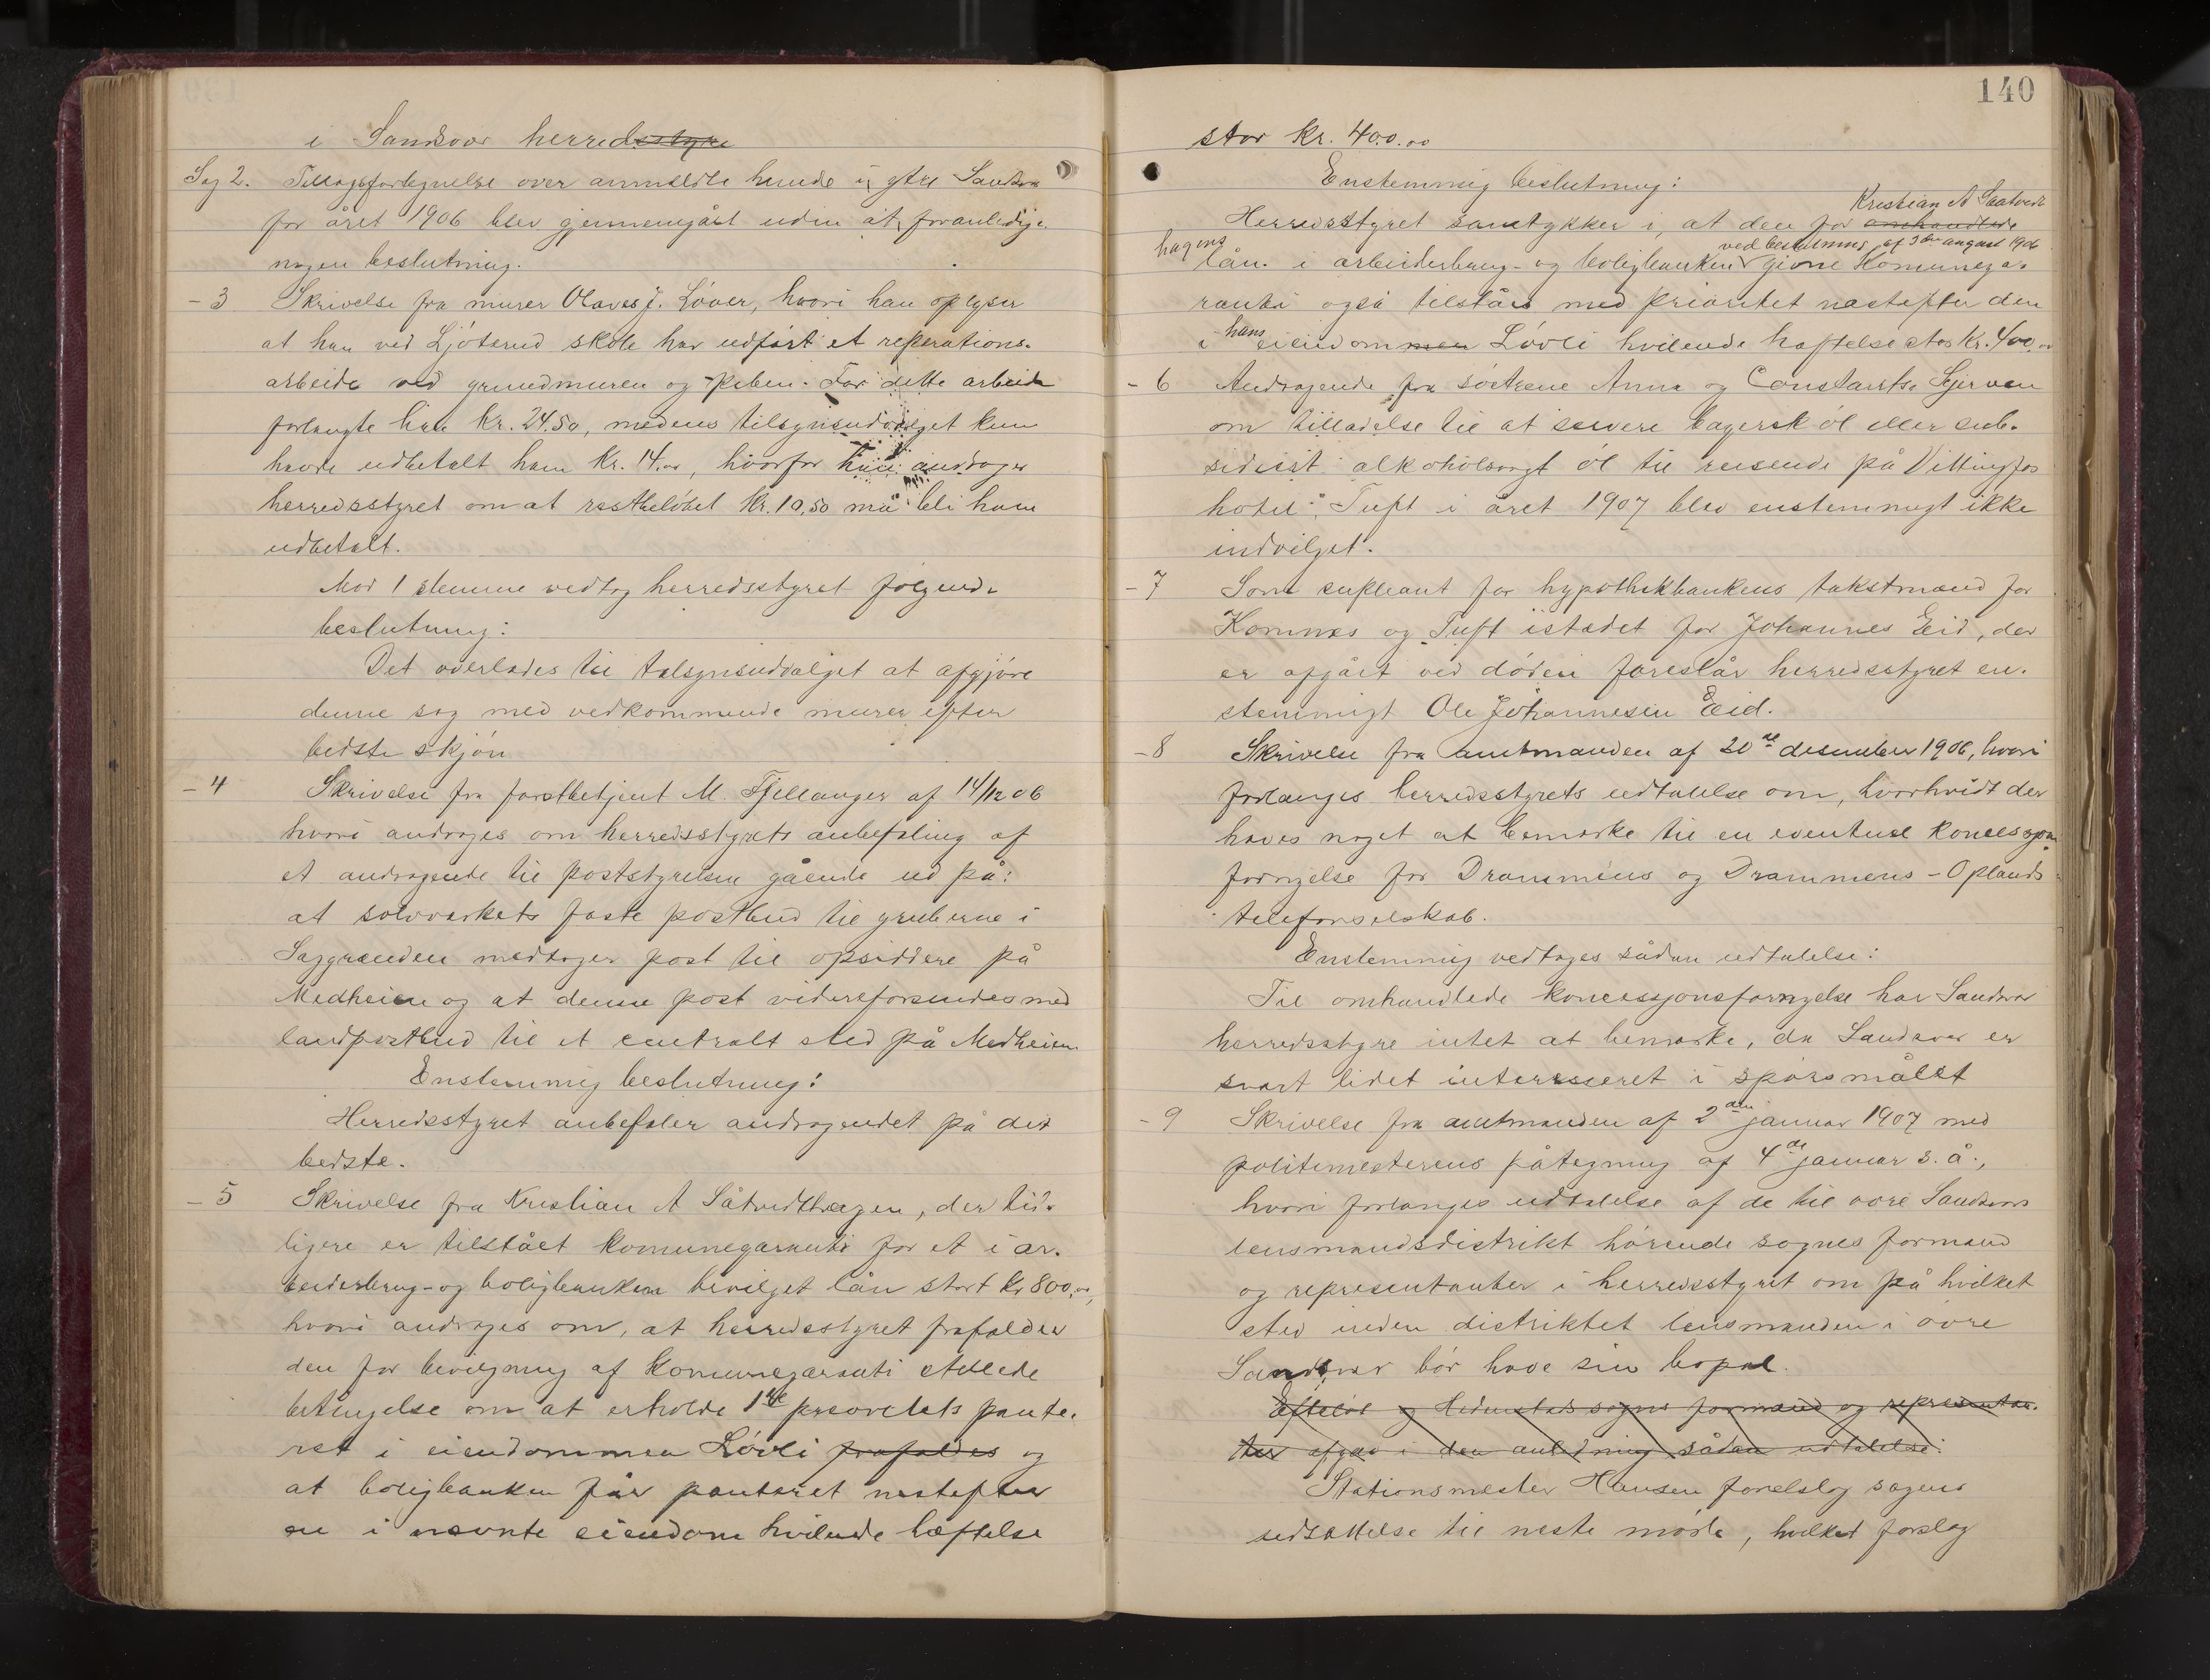 i Sandsvær herredsstyre
Sag 2. Tillægsfortegnelse over anmeldte hunde i ytre Sandsvær
for året 1906 blev gjennemgåt uden at foranledige
nogen beslutning.
- 3 Skrivelse fra murer Olaves J. Løver, hvori han oplyser
at han ved Ljøterud skole har udført et reperations-
arbeide ved grundmuren og piben. For dette arbeide
forlangte han kr. 24.50, medens tilsynsudvalget kun
havde udbetalt ham kr. 14.00, hvorfor han andrager
herredsstyret om at restbeløbet kr. 10.50 må bli ham
udbetalt.
Mod 1 stemme vedtog herredsstyret følgende
beslutning:
Det overlades til tilsynsudvalget at afgjøre
denne sag med vedkommende murer efter
bedste skjøn
- 4 Skrivelse fra forstbetjent M. Fjellanger af 14/12 06
hvori andrages om herredsstyrets anbefaling af
et andragende til poststyrelsen gående ud på:
at sølvverkets faste postbud til gruberne i
Saggrenden medtager post til opsiddere på
Medheim og at denne post videreforsendes med
landpostbud til et centralt sted på Medheim
Enstemmig beslutning:
Herredsstyret anbefaler andragendet på det
bedste.
- 5 Skrivelse fra Kristian A Såtvedthagen, der tid-
ligere er tilstået komunegaranti for et i ar-
beiderbrug- og boligbanken bevilget lån stort kr 800.00,
hvori andrages om, at herredsstyret frafalder
den for bevilgning af komunegaranti stillede
betingelse om at erholde 1ste prioritets pante-
ret i eiendommen Løvli frafaldes og
at boligbanken får panteret nestefter
en i nævnte eiendom hvilende hæftelse
140
stor kr. 400.00
Enstemmig beslutning:
Kristian A Saatvedt
Herredsstyret samtykker i, at den for omhandlede
hagens ved beslutning af 3die august 1906
lån i arbeiderbrug- og boligbanken givne komunega-
ranti også tilståes med prioritet nestefter den
i hans eiendommen Løvli hvilende hæftelse stor kr. 400.00
- 6 Andragende fra søstrene Anna og Constantse Skjerven
om tilladelse til at servere bayersk øl eller sub-
sidiært alkoholsvagt øl til reisende på Vittingfos
hotel", Tuft i året 1907 blev enstemmigt ikke
indvilget.
- 7 Som supleant for hypothekbankens takstmænd for
Komnes og Tuft istedet for Johannes Eid, der
er afgået ved døden foreslår herredsstyret en-
stemmigt Ole Johannesen Eid.
- 8 Skrivelse fra amtmanden af 20de desember 1906, hvori
forlanges herredsstyrets udtalelse om, hvorhvidt der
haves noget at bemærke til en eventuel koncessjons
fornyelse for Drammens og Drammens - Oplands
telefonselskab.
Enstemmig vedtages sådan udtalelse:
Til omhandlede koncessjonsfornyelse har Sandsvær
herredsstyre intet at bemærke, da Sandsvær er
svært lidet interesseret i spørsmålet
- 9 Skrivelse fra amtmanden af 2den januar 1907 med
politimesterens påtegning af 4de januar s. å.,
hvori forlanges udtalelse af de til øvre Sandsværs
lensmandsdistrikt hørende sognes formænd
og representanter i herredsstyret om på hvilket
sted inden distriktet lensmanden i øvre
Sandsvær bør have sin bopæl.
Efteløt og Hedenstads sognes formænd og representan-
ter afgav i den anledning sådan udtalelse:
Stationsmester Hansen foreslog sagens
udsættelse til neste møde, hvilket forslag